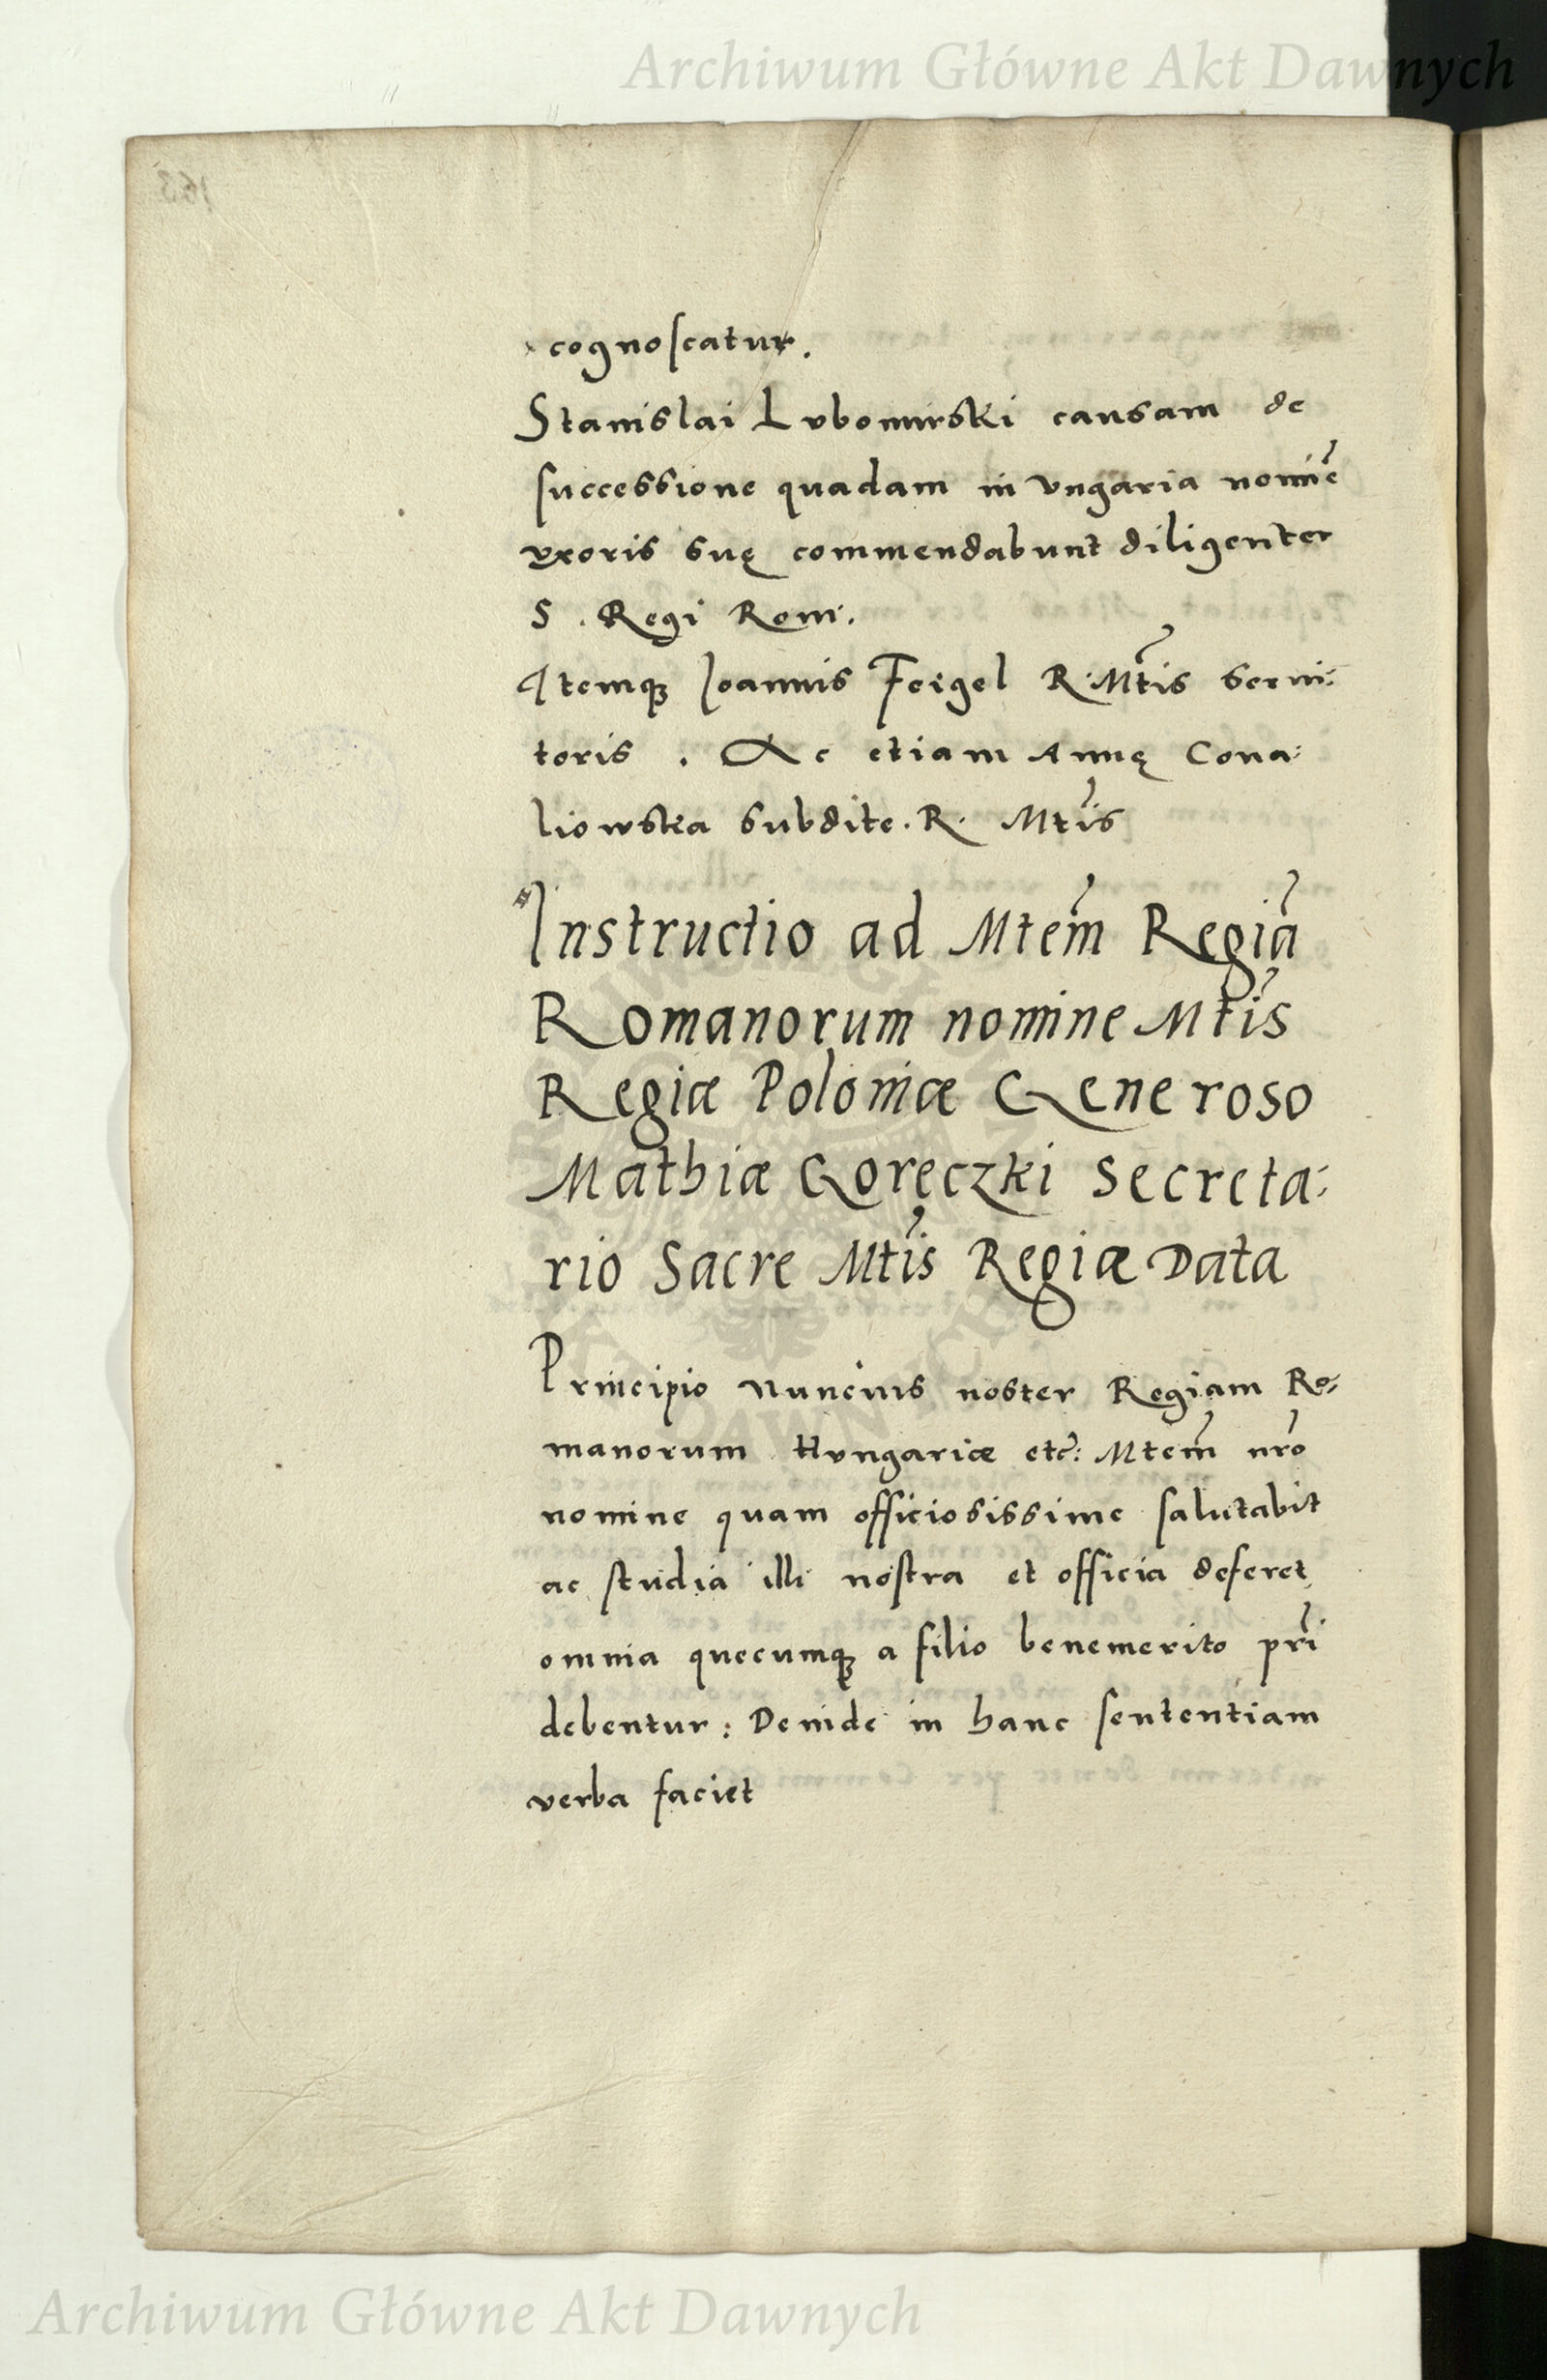 Archiwum Główne Akt Dawnych
cognoscatur.
Stanislai Lvbomirski causam de
successione quadam in vngaria nomīe
vxoris suę commendabunt diligenter
S. Regi Rom.
Itemqꝫ Ioannis Feigel R. Mtis serui:
toris. Ac etiam Annę Cona:
liowska subdite. R. Mtis
Instructio ad Mtem Regiā
Romanorum nomine Mtis
Regiæ Poloniæ Generoso
Mathiæ Goręczki Secreta:
rio Sacre Mtis Regiæ Data
Principio Nuncius noster Regiam Ro:
manorum Hvngariæ etc: Mtem nrō
nomine quam officiosissime salutabit
ac studia illi nostra et officia deferet
omnia quecumqꝫ a filio benemerito prī
debentur: Deinde in hanc sententiam
verba faciet
Archiwum Główne Akt Dawnych